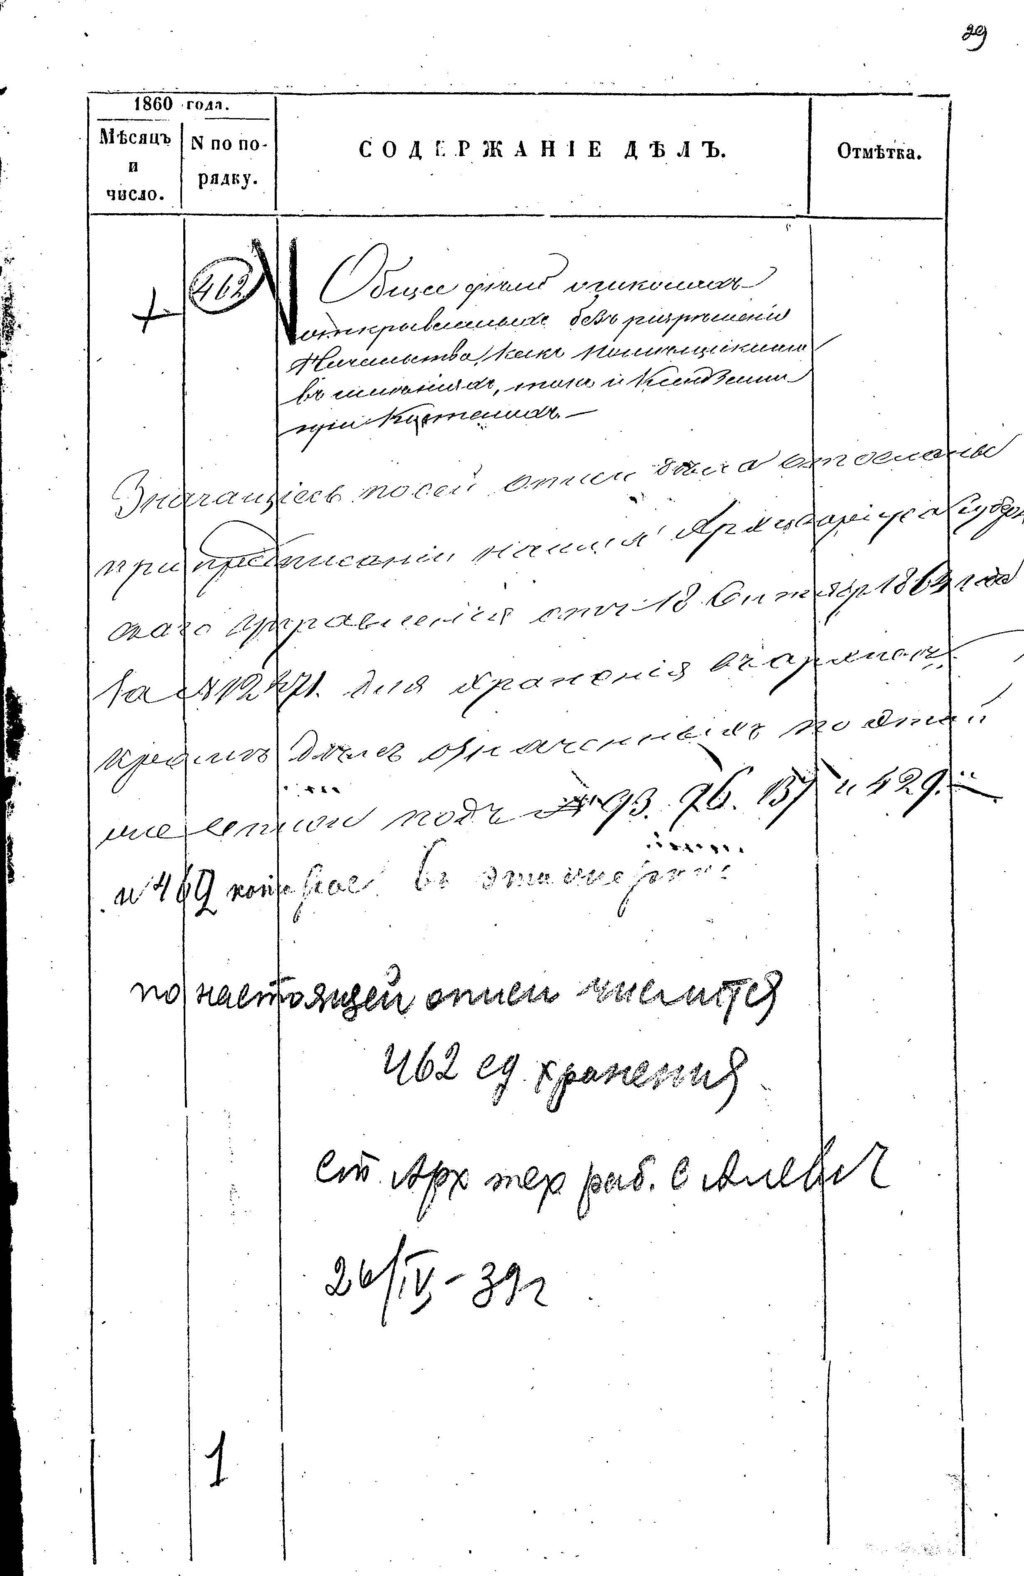 29
1860 года.
Мѣсяцъ и число.
N по порядку.
СОДЕРЖАНІЕ ДѢЛЪ.
Отмѣтка.
462
Общее дѣло о школахъ
открываемыхъ безъ разрѣшенія
Начальства, какъ Помѣщиками
въ имѣніяхъ, такъ и Ксендзами
при Костелахъ.
Значащіесь по сей описи дѣла отосланы
при предписаніи на имя Архиваріуса Губерн
скаго Правленія отъ 18 Октября 1864 года
за № 12471. для храненія въ архивѣ
кромѣ дѣлъ означенныхъ по этой
же описи подъ № 93. 96. 137 и 429.
и 462 въ
по настоящей описи числится
462 ед. хранения
ст. Арх тех раб. С
26/IV-39г
1